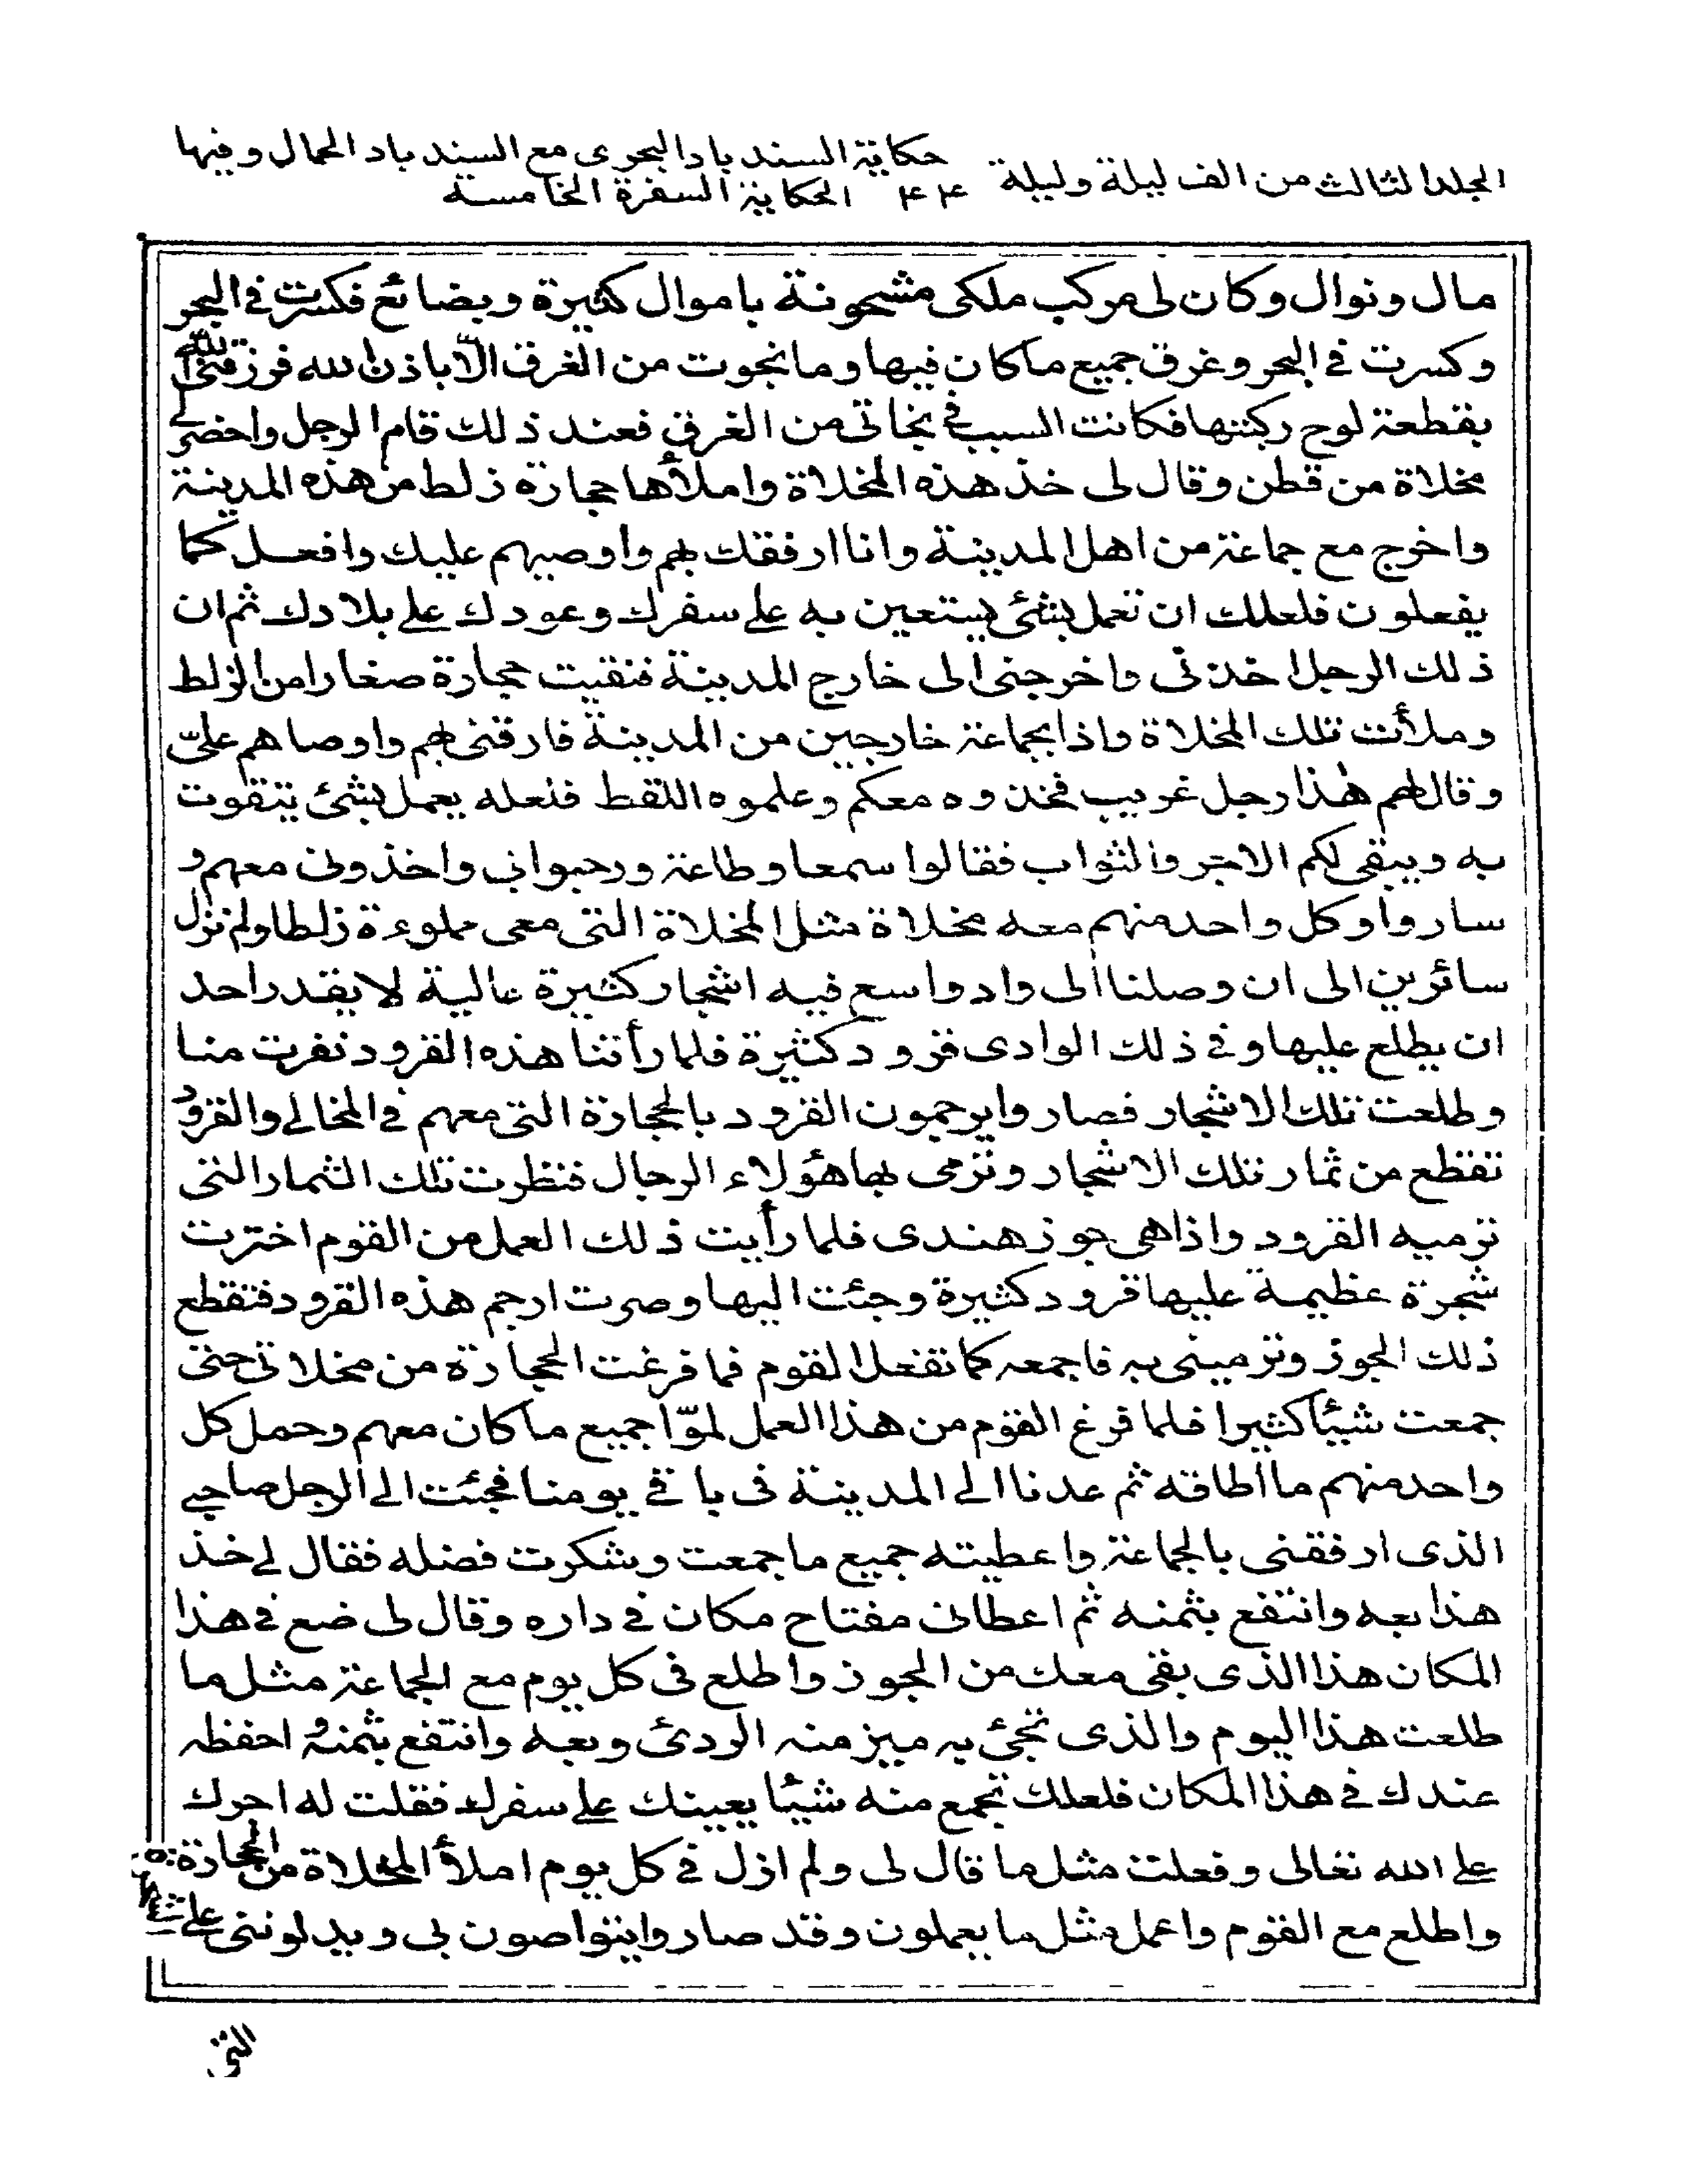 المجلد الثالث من الف ليلة وليلة ٤٤ حكاية السند باد البحرى مع السيند باد الحمال وفيها
الحكاية السفرة الخامسة
مال ونوال وكان لى مركب ملكى مشحونة باموال كثيرة وبضائع فكسرت فى البحر
وكسرت فى البحر وغرق جميع ماكان فيها وما نجوت من الغرق الّا باذن الله فرزقنى الله
بقطعة لوح ركبتها فكانت السبب فى نجاتى من الغرق فعند ذلك قام الرجل واحضر لى
مخلاة من قطن وقال لى خذ هذه المخلاة واملأها حجارة زلط من هذه المدينة
واخرج مع جماعة من اهل المدينة وانا ارفقك بهم واوصيهم عليك وافعل كما
يفعلون فلعلك ان تعمل بشئ يستعين به على سفرك وعودك على بلادك ثم ان
ذلك الرجل اخذنى واخرجنى الى خارج المدينة فنقيت حجارة صغارا من الزلط
وملأت تلك المخلاة واذا بجماعة خارجين من المدينة فارقنى بهم واوصاهم علىّ
وقال لهم هذا رجل غريب فخذوه معكم وعلموه اللقط فلعله يعمل بشئ يتقوت
به ويبقى لكم الاجر والثواب فقالوا سمعا وطاعة ورحبوابى واخذونى معهم و
ساروا وكل واحد منهم معه مخلاة مثل المخلاة التى معى مملوءة زلطا ولم نزل
سائرين الى ان وصلنا الى واد واسع فيه اشجار كثيرة عالية لا يقدر احد
ان يطلع عليها وفى ذلك الوادى قرود كثيرة فلما رأتنا هذه القرود نفرت منا
وطلعت تلك الاشجار فصاروا يرجمون القرود بالحجارة التى معهم فى المخالى والقرود
تقطع من ثمار تلك الاشجار وترمى بها هؤلاء الرجال فنظرت تلك الثمار التى
ترميه القرود واذاهى جوز هندى فلما رأيت ذلك العمل من القوم اخترت
شجرة عظيمة عليها قرود كثيرة وجئت اليها وصرت ارجم هذه القرود فتقطع
ذلك الجوز وترمينى به فاجمعه كما تفعل القوم فما فرغت الحجارة من مخلاتى حتى
جمعت شيئا كثيرا فلما فرغ القوم من هذا العمل لموّا جميع ماكان معهم وحمل كل
واحد منهم ما اطاقه ثم عدنا الى المدينة فى باقى يومنا فجئت الى الرجل صاحبى
الذى ارفقنى بالجماعة واعطيته جميع ما جمعت وشكرت فضله فقال لى خذ
هذا بعه وانتفع بثمنه ثم اعطانى مفتاح مكان فى داره وقال لى ضع فى هذا
المكان هذا الذى بقى معك من الجوز واطلع فى كل يوم مع الجماعة مثل ما
طلعت هذا اليوم والذى تجئ به ميز منه الردئ وبعه وانتفع بثمنه و احفظه
عندك فى هذا المكان فلعلك تجمع منه شيئا يعينك على سفرك فقلت له اجرك
على الله تعالى وفعلت مثل ما قال لى ولم ازل فى كل يوم املأ المخلاة من الحجارة
واطلع مع القوم واعمل مثل ما يعملون وقد صاروا يتواصون بى ويدلوننى على
التى